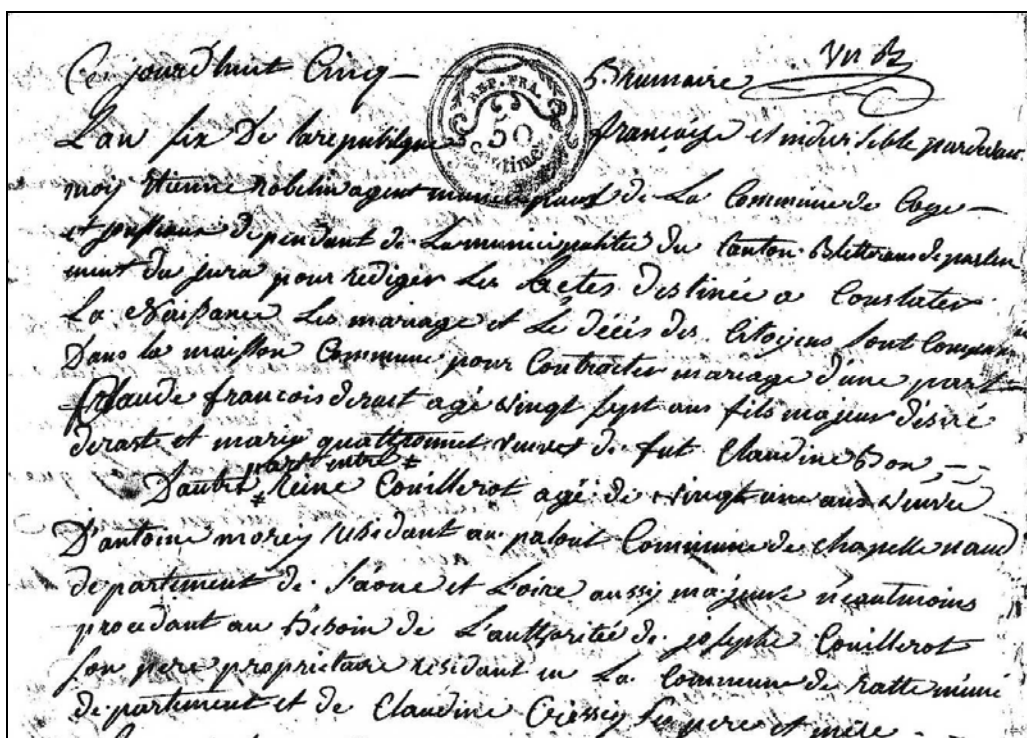 Ce jourd'huit Cinq — Brumaire
REP. FRA.
50
Centime
L'an six De la republique françoise et indivisible pardevant
moy Etienne robelin agent municipaux de La Commune de Coge —
et dependant de La municipalitée du Canton Bletterans departe
ment du jura pour rediger Les Actes Destinée a Constater
La Naissance Les mariage et Le décés des Citoyens sont Comparu
Dans la maisson Commune pour Contracter mariage d'une part
Claude francois derast agé vingt sept ans fils majeur désiré
deraste et marie veuvet de fut Claudine Bon
part entre
D'autre Reine Couillerot agé de vingt une ans veuvée
D'antoine morey residant au palout Commune de Chapelle naud
departement de Saone et Loire aussy majeure neautmoins
procedant au Besoin de L'authoritée de josephe Couillerot
son pere propriétaire residant en La Commune de ratte même
departement et de Claudine Cressey ses pere et mère